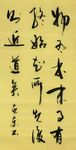 物有本末事有
終始知所先後
則近道矣